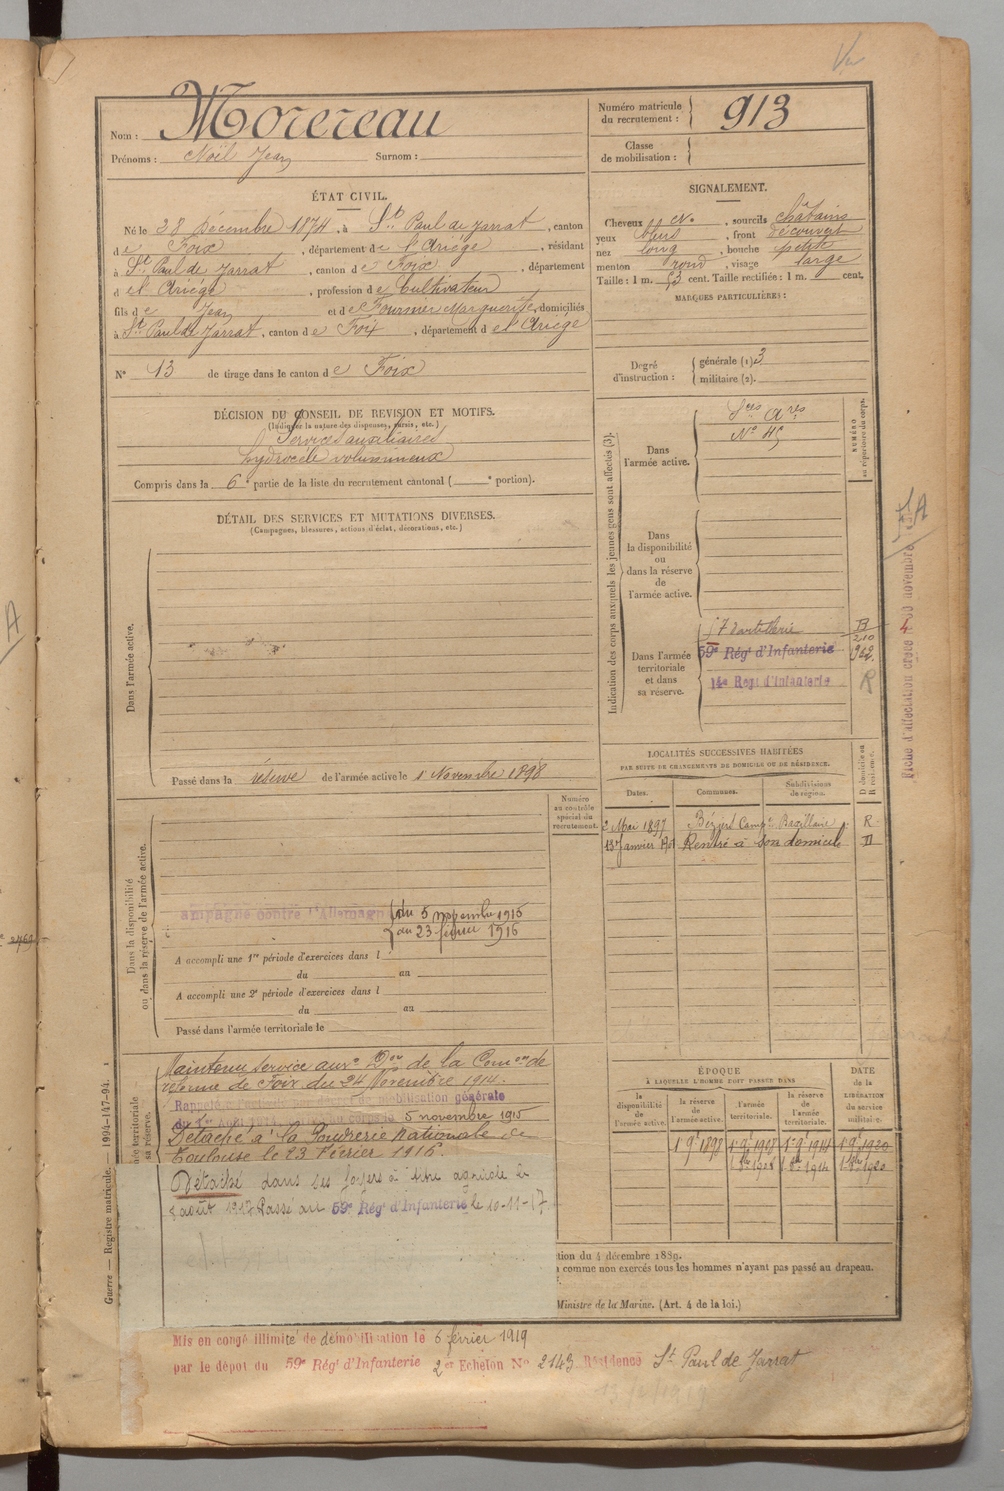 Nom : Morereau
Prénoms : Noël Jean Surnom :
Numéro matricule du recrutement : 913
Classe de mobilisation :
ÉTAT CIVIL.
Né le 28 Décembre 1874, à St. Paul de Jarrat, canton
de Foix, département de l'Ariège, résidant
à St. Paul de Jarrat, canton de Foix, département
d el Ariége, profession de Cultivateur
fils de Jean et de Fournier Marguerite, domiciliés
à St. Paul de Jarrat, canton de Foix, département d el'Ariége
N° 13 de tirage dans le canton de Foix
SIGNALEMENT.
Cheveux , sourcils châtains
yeux bleus , front découvert
nez long , bouche petite
menton rond , visage large
Taille : 1 m. 53 cent. Taille rectifiée : 1 m. cent.
MARQUES PARTICULIÈRES :
Degré d'instruction : générale (1). 3
militaire (2).
DÉCISION DU CONSEIL DE REVISION ET MOTIFS.
(Indiquer la nature des dispenses, sursis, etc.)
Services auxiliaires
hydrocèle volumineux
Compris dans la 6e partie de la liste du recrutement cantonal ( e portion).
DÉTAIL DES SERVICES ET MUTATIONS DIVERSES.
(Campagnes, blessures, actions d'éclat, décorations, etc.)
Dans l'armée active.
Passé dans la réserve de l'armée active le 1 Novembre 1898
Indication des corps auxquels les jeunes gens sont affectés (3).
NUMÉRO au répertoire du corps.
Dans l'armée active.
Sces Ares
Dans la disponibilité ou dans la réserve de l'armée active.
Dans l'armée territoriale et dans sa réserve.
17 d'artillerie
59e Régt d'Infanterie
14e Regt d'Infanterie
R
Fiche d'affectation novembre
LOCALITÉS SUCCESSIVES HABITÉES
PAR SUITE DE CHANGEMENTS DE DOMICILE OU DE RÉSIDENCE.
Dates. Communes. Subdivisions de région. D domicile ou R résidence.
2 Mai 1897 Béziers R.
13 Janvier Rentré à son domicile D
Numéro au contrôle spécial du recrutement.
Dans la disponibilité ou dans la réserve de l'armée active.
ampagne contre l'Allemagn du 5 novembre 1915
au 23 février 1916
A accompli une 1re période d'exercices dans l
du au
A accompli une 2e période d'exercices dans l
du au
Passé dans l'armée territoriale le
Maintenu service auxre Don de la Comon de
réforme de Foix du 24 Novembre 1914.
Rappelé à l'activité par décret de mobilisation générale
du 1er Août 1914. 5 novembre 1915
Détaché à la Poudrerie Nationale de
Toulouse le 23 Février 1916.
Détaché dans ses foyers à titre agricole le
8 août 1917 Passé au 59e Régt d'Infanterie le 10-11-17.
ÉPOQUE
À LAQUELLE L'HOMME DOIT PASSER DANS
DATE de la LIBÉRATION du service militaire.
la disponibilité de l'armée active. la réserve de l'armée active. l'armée territoriale. la réserve de l'armée territoriale.
tion du 4 décembre 1889.
comme non exercés tous les hommes n'ayant pas passé au drapeau.
Ministre de la Marine. (Art. 4 de la loi.)
Guerre — Registre matricule. — 1994-147-94.
Mis en congé illimité de démobilisation le 6 février 1919
par le dépôt du 59e Régt d'Infanterie 2er Echelon N° 2143 Résidence St. Paul de Jarrat